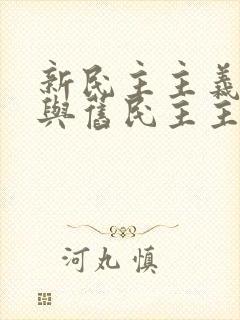 新民主主義
與舊民主主
河丸慎